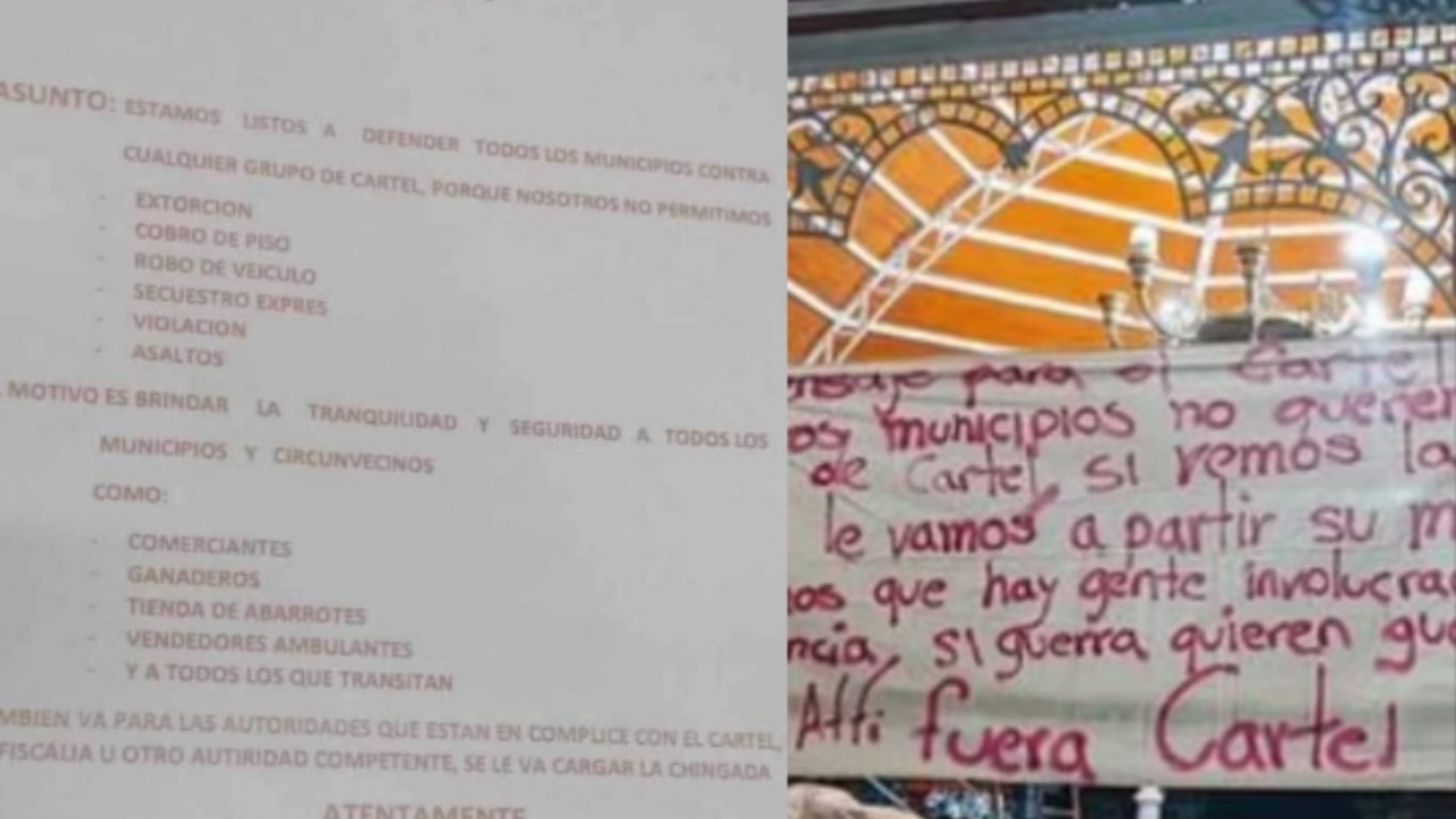 ASUNTO: ESTAMOS LISTOS A DEFENDER TODOS LOS MUNICIPIOS CONTRA
CUALQUIER GRUPO DE CARTEL, PORQUE NOSOTROS NO PERMITIMOS
- EXTORCION
- COBRO DE PISO
- ROBO DE VEICULO
- SECUESTRO EXPRES
- VIOLACION
- ASALTOS
MOTIVO ES BRINDAR LA TRANQUILIDAD Y SEGURIDAD A TODOS LOS
MUNICIPIOS Y CIRCUNVECINOS
COMO:
- COMERCIANTES
- GANADEROS
- TIENDA DE ABARROTES
- VENDEDORES AMBULANTES
- Y A TODOS LOS QUE TRANSITAN
MBIEN VA PARA LAS AUTORIDADES QUE ESTAN EN COMPLICE CON EL CARTEL,
FISCALIA U OTRO AUTIRIDAD COMPETENTE, SE LE VA CARGAR LA CHINGADA
ATENTAMENTE
nsaje para el Cartel
os municipios no queren
de Cartel, si vemos la
le vamos a partir su m
os que hay gente involucra
ncia, si guerra quieren gu
Atti fuera Cartel